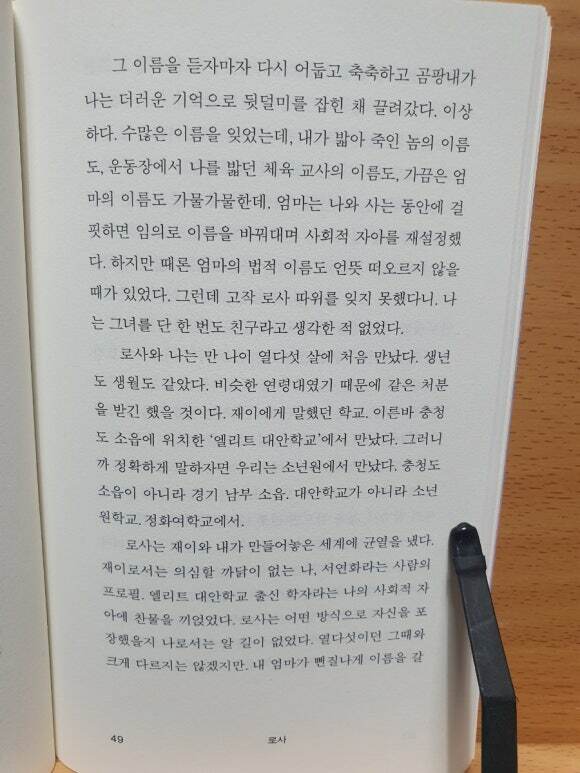 그 이름을 듣자마자 다시 어둡고 축축하고 곰팡내가
나는 더러운 기억으로 뒷덜미를 잡힌 채 끌려갔다. 이상
하다. 수많은 이름을 잊었는데, 내가 밟아 죽인 놈의 이름
도, 운동장에서 나를 밟던 체육 교사의 이름도, 가끔은 엄
마의 이름도 가물가물한데. 엄마는 나와 사는 동안에 걸
핏하면 임의로 이름을 바꿔대며 사회적 자아를 재설정했
다. 하지만 때론 엄마의 법적 이름도 언뜻 떠오르지 않을
때가 있었다. 그런데 고작 로사 따위를 잊지 못했다니. 나
는 그녀를 단 한 번도 친구라고 생각한 적 없었다.
로사와 나는 만 나이 열다섯 살에 처음 만났다. 생년
도 생월도 같았다. 비슷한 연령대였기 때문에 같은 처분
을 받긴 했을 것이다. 재이에게 말했던 학교. 이른바 충청
도 소읍에 위치한 ‘엘리트 대안학교’에서 만났다. 그러니
까 정확하게 말하자면 우리는 소년원에서 만났다. 충청도
소읍이 아니라 경기 남부 소읍. 대안학교가 아니라 소년
원학교. 정화여학교에서.
로사는 재이와 내가 만들어놓은 세계에 균열을 냈다.
재이로서는 의심할 까닭이 없는 나, 서연화라는 사람의
프로필. 엘리트 대안학교 출신 학자라는 나의 사회적 자
아에 찬물을 끼얹었다. 로사는 어떤 방식으로 자신을 포
장했을지 나로서는 알 길이 없었다. 열다섯이던 그때와
크게 다르지는 않겠지만. 내 엄마가 뻔질나게 이름을 갈
49
로사